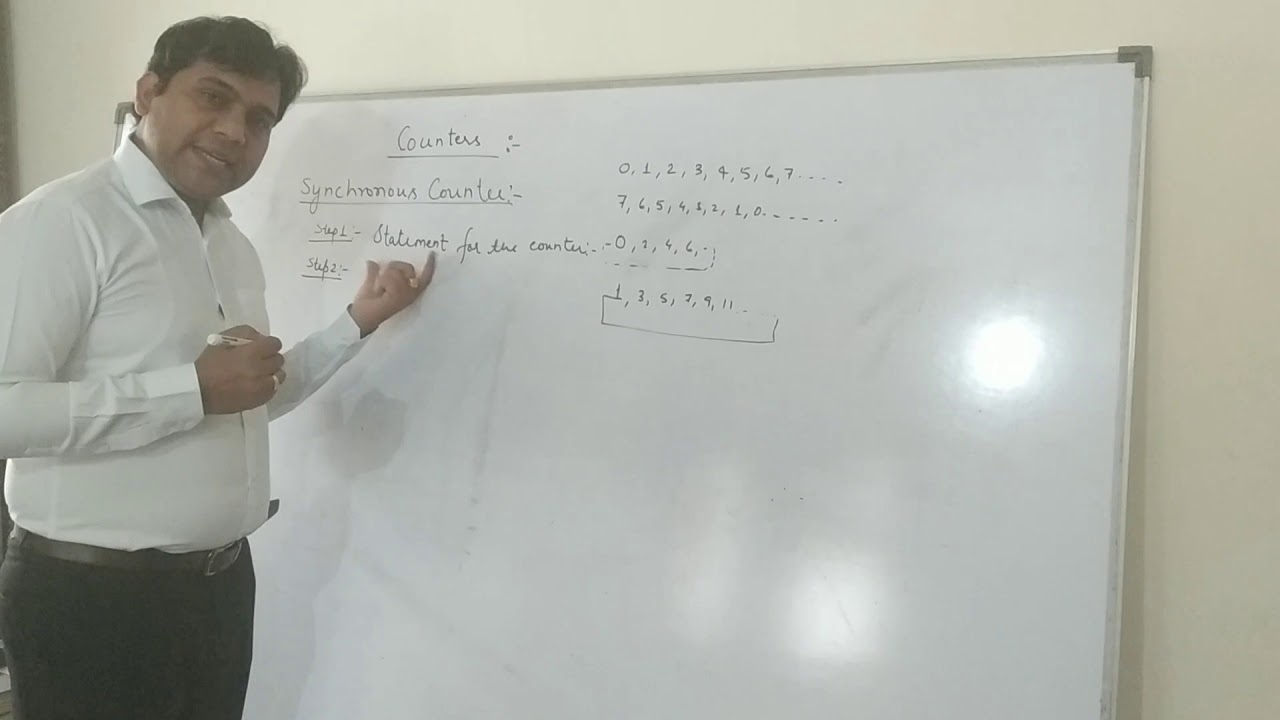 Counters :-
Synchronous Counter:-
Step1:- Statement for the counter:-
Step2:-
0, 1, 2, 3, 4, 5, 6, 7 . . . .
7, 6, 5, 4, 3, 2, 1, 0 . - - - - -
0, 2, 4, 6, -
1, 3, 5, 7, 9, 11 . .